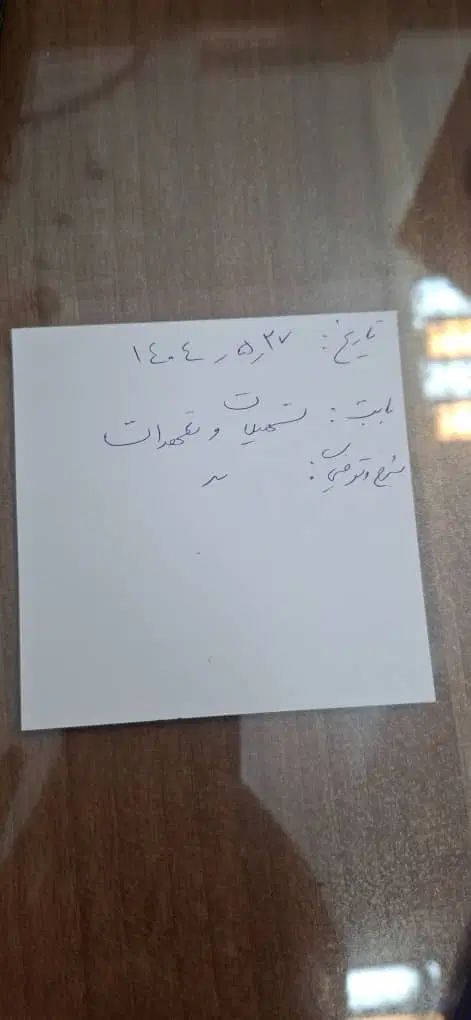 تاریخ: ۱۴۰۴ر۵ر۲۷
بابت: تسهیلات و تعهدات
شرح و توضیحات: ~